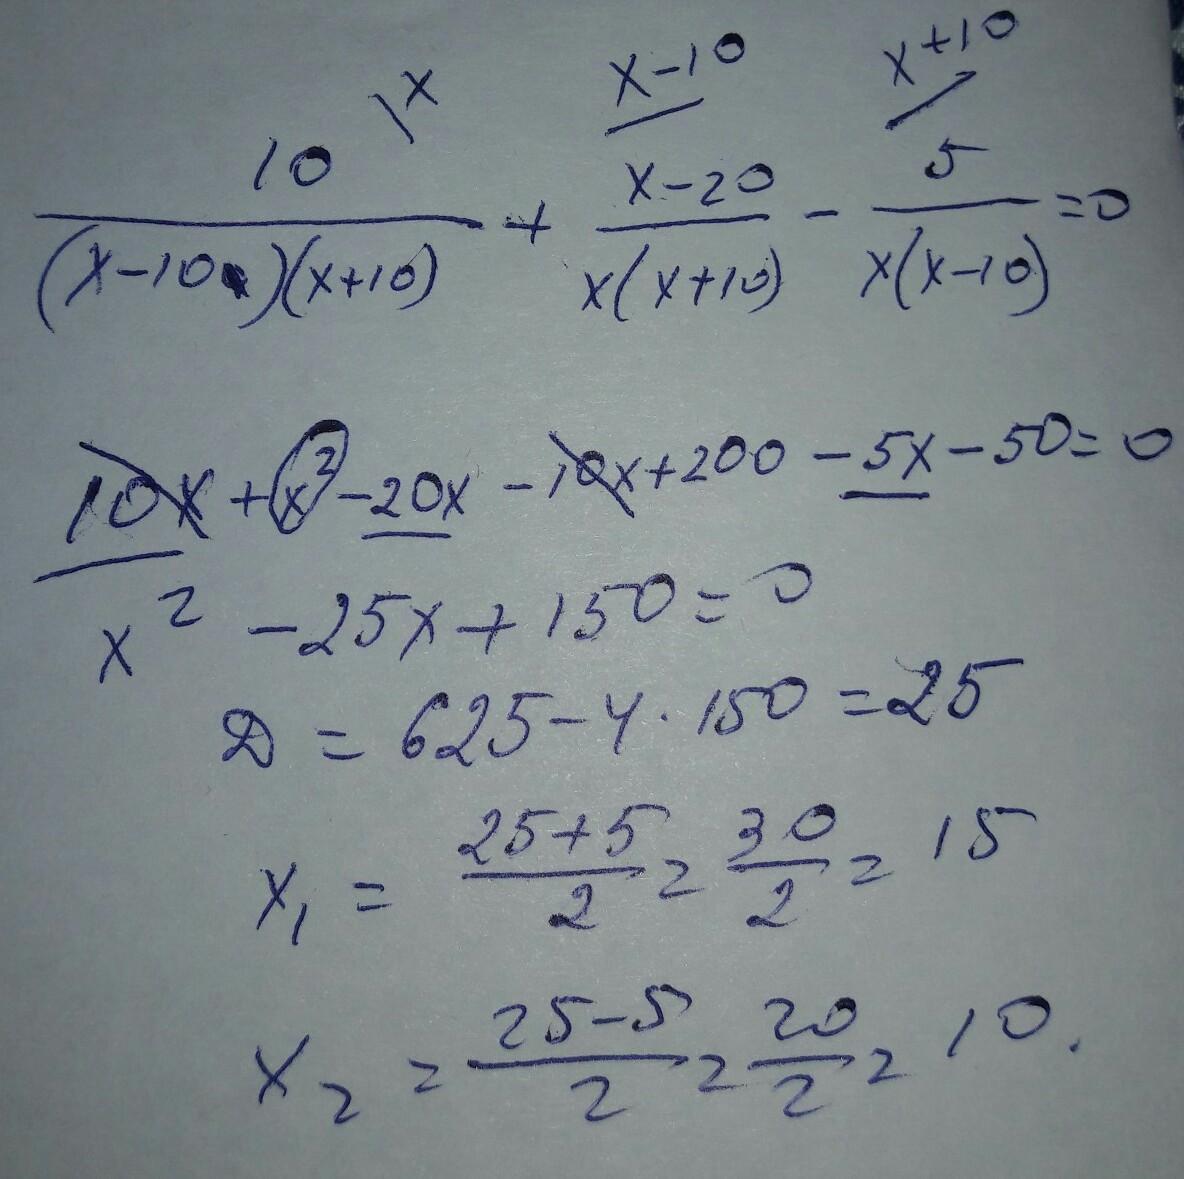 10 \x x-10 x+10
10/((x-10)(x+10)) + (x-20)/(x(x+10)) - 5/(x(x-10)) =0
10x+x²-20x-10x+200-5x-50=0
x²-25x+150=0
D=625-4·150=25
x₁=(25+5)/2=30/2=15
x₂=(25-5)/2=20/2=10.